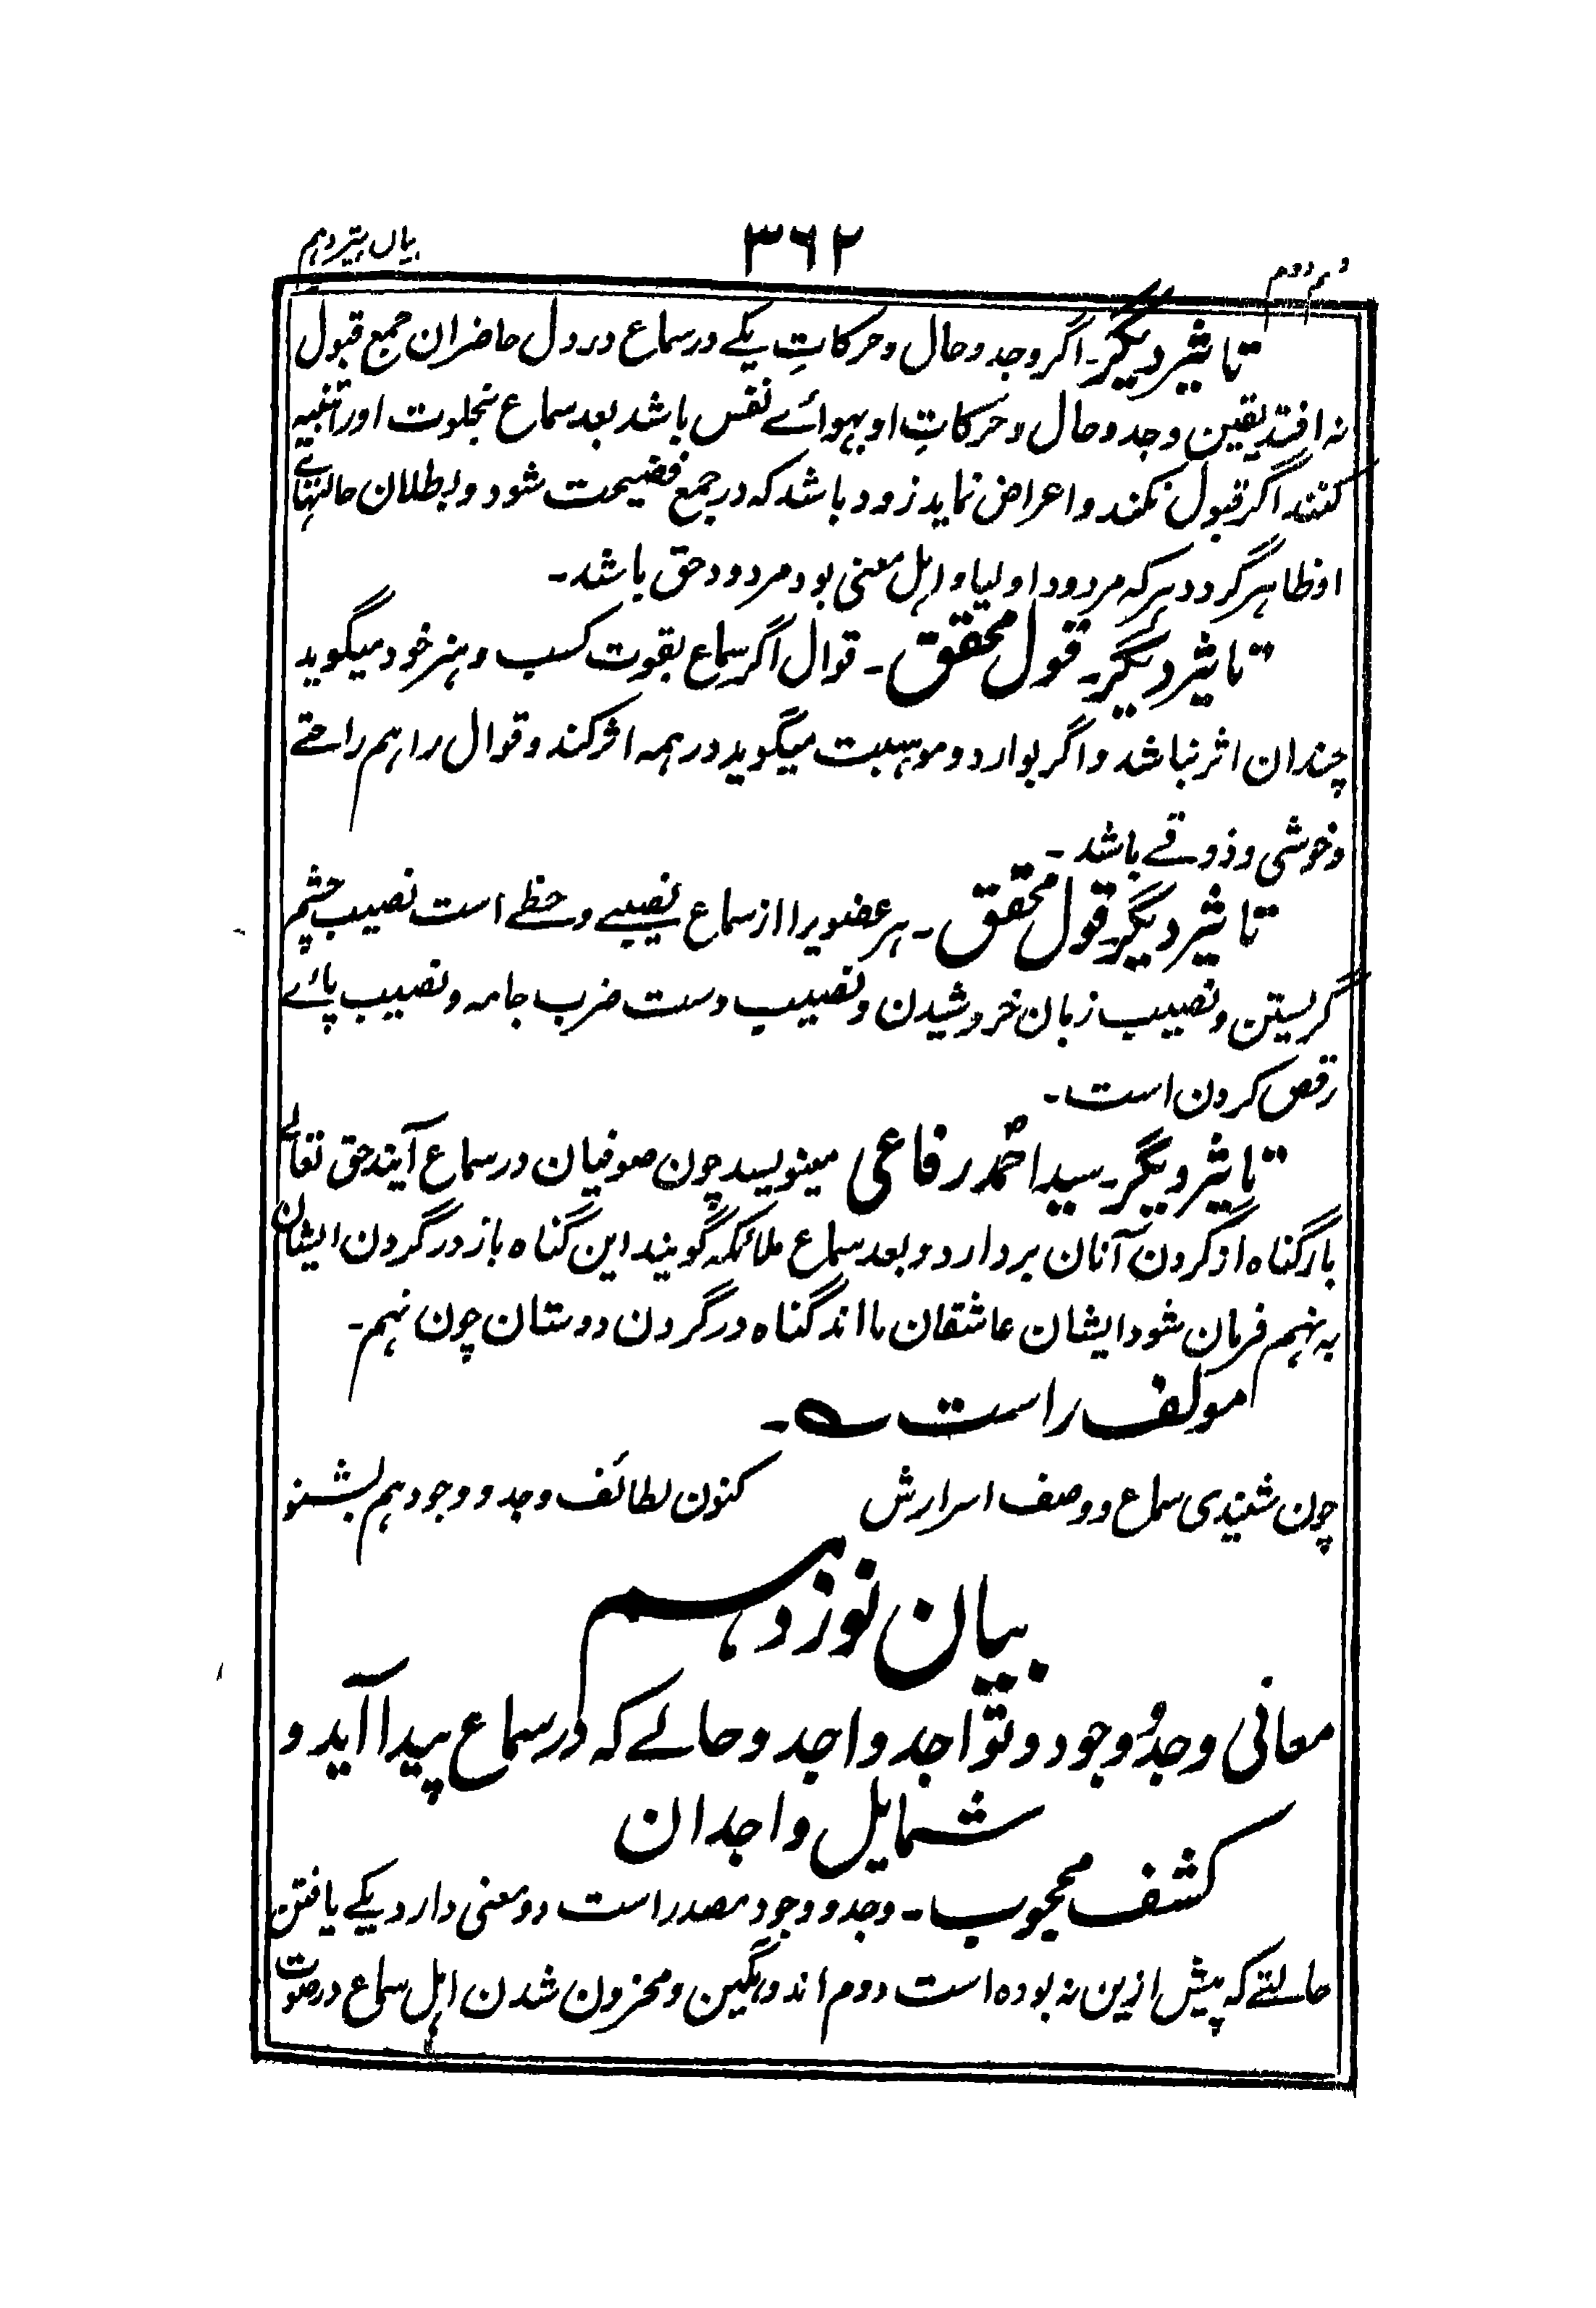 بیان ہیزدہم
۳۶۲
دوم
تاثیر دیگر۔ اگر وجد و حال و حرکاتِ یکے در سماع در دل حاضران جمع قبول
نہ افتد یقین وجد و حال و حرکاتِ او بہوائے نفس باشد بعد سماع بخلوت اورا تنبیہ
کنند اگر قبول نکند و اعراض نماید زود باشد کہ در جمع فضیحت شود و بطلان حالتہائے
او ظاہر گردد ہرکہ مردود اولیا و اہل معنی بود مردود حق باشد۔
تاثیر دیگر۔ قول محقق۔ قوال اگر سماع بقوت کسب و ہنر خود میگوید
چندان اثر نباشد و اگر بوارد و موہبت میگوید در ہمہ اثر کند و قوال را ہم راحتے
و خوشی و ذوقے باشد۔
تاثیر دیگر۔ قول محقق۔ ہر عضویرا از سماع نصیبے و حظے است نصیب چشم
گریستن و نصیب زبان خروشیدن و نصیب دست ضرب جامہ و نصیب پائے
رقص کردن است۔
تاثیر دیگر۔ سید احمد رفاعی مینویسد چون صوفیان در سماع آیند حق تعالے
بار گناہ از گردن آنان بردارد و بعد سماع ملائکہ گویند این گناہ باز در گردن ایشان
بہ نہیم فرمان شود ایشان عاشقان ما اند گناہ در گردن دوستان چون نہم۔
مولف راست ؎۔
چون شنیدی سماع و وصف اسرارش کنون لطائف وجد و وجود ہم بشنو
بیان نوزدہم
معانی وجد و وجود و تواجد و اجد و حالے کہ در سماع پیدا آید و
شمایل واجدان
کشف محجوب۔ وجد و وجود مصدر است دو معنی دارد یکے یافتن
حالتے کہ پیش ازین نہ بودہ است دوم اندوہگین و محزون شدن اہل سماع در صوت